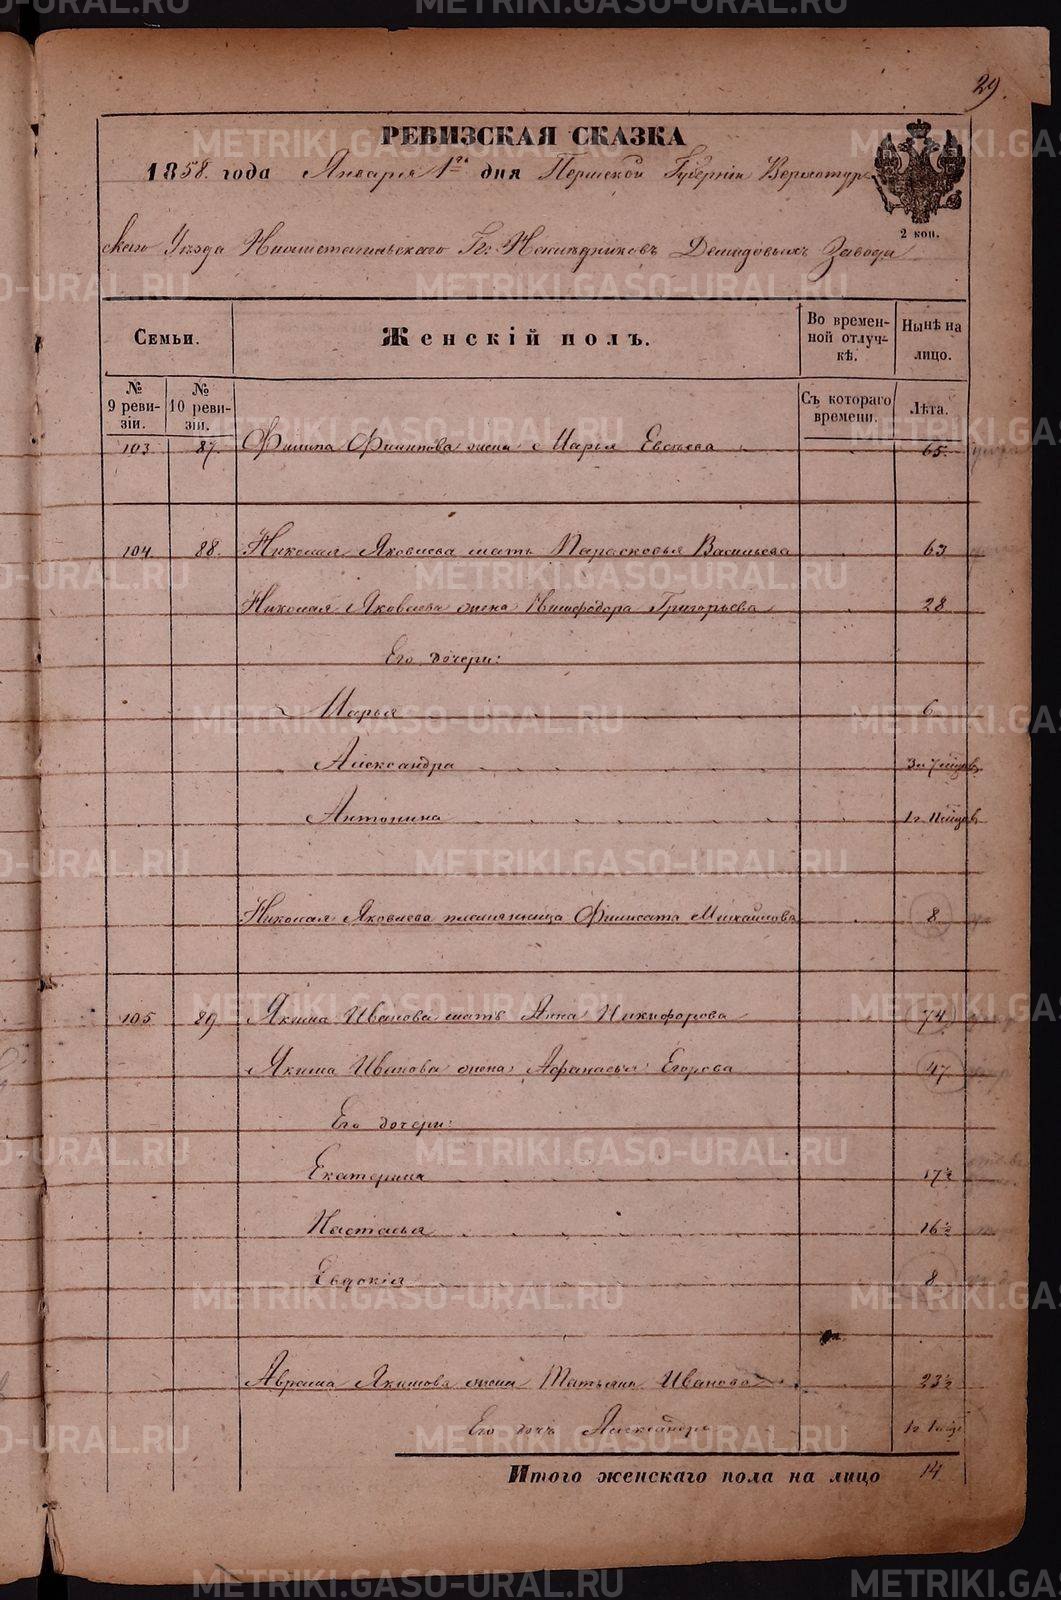 29.
РЕВИЗСКАЯ СКАЗКА
1858. года Января 1го дня Пермской Губерніи Верхотур-
скаго Уѣзда Нижнетагильскаго Гг. Наслѣдниковъ Демидовыхъ Завода
2 коп.
Семьи.
Женскій полъ.
Во временной отлучкѣ.
Нынѣ на лицо.
№ 9 ревизіи.
№ 10 ревизіи.
Съ котораго времени.
Лѣта.
103. 87. Филипа Филипова жена Марья Евсѣева 65.
104. 88. Николая Яковлева мать Парасковья Васильева 63
Николая Яковлева жена Григорьева 28
Его дочери:
Марья 6
Александра 3 г 7 мѣсяцевъ
Антонина 1 г 11 мѣсяцевъ
Николая Яковлева племянница Филисата Михайлова 8
105. 89. Якима Иванова мать Анна Никифорова 74
Якима Иванова жена Афанасья Егорова 47.
Его дочери:
Екатерина 17½
Настасья 16½
Евдокія 8
Аврама Якимова жена Татьяна Иванова 23½
Его дочь Александра
Итого женскаго пола на лицо 14
METRIKI.GASO-URAL.RU